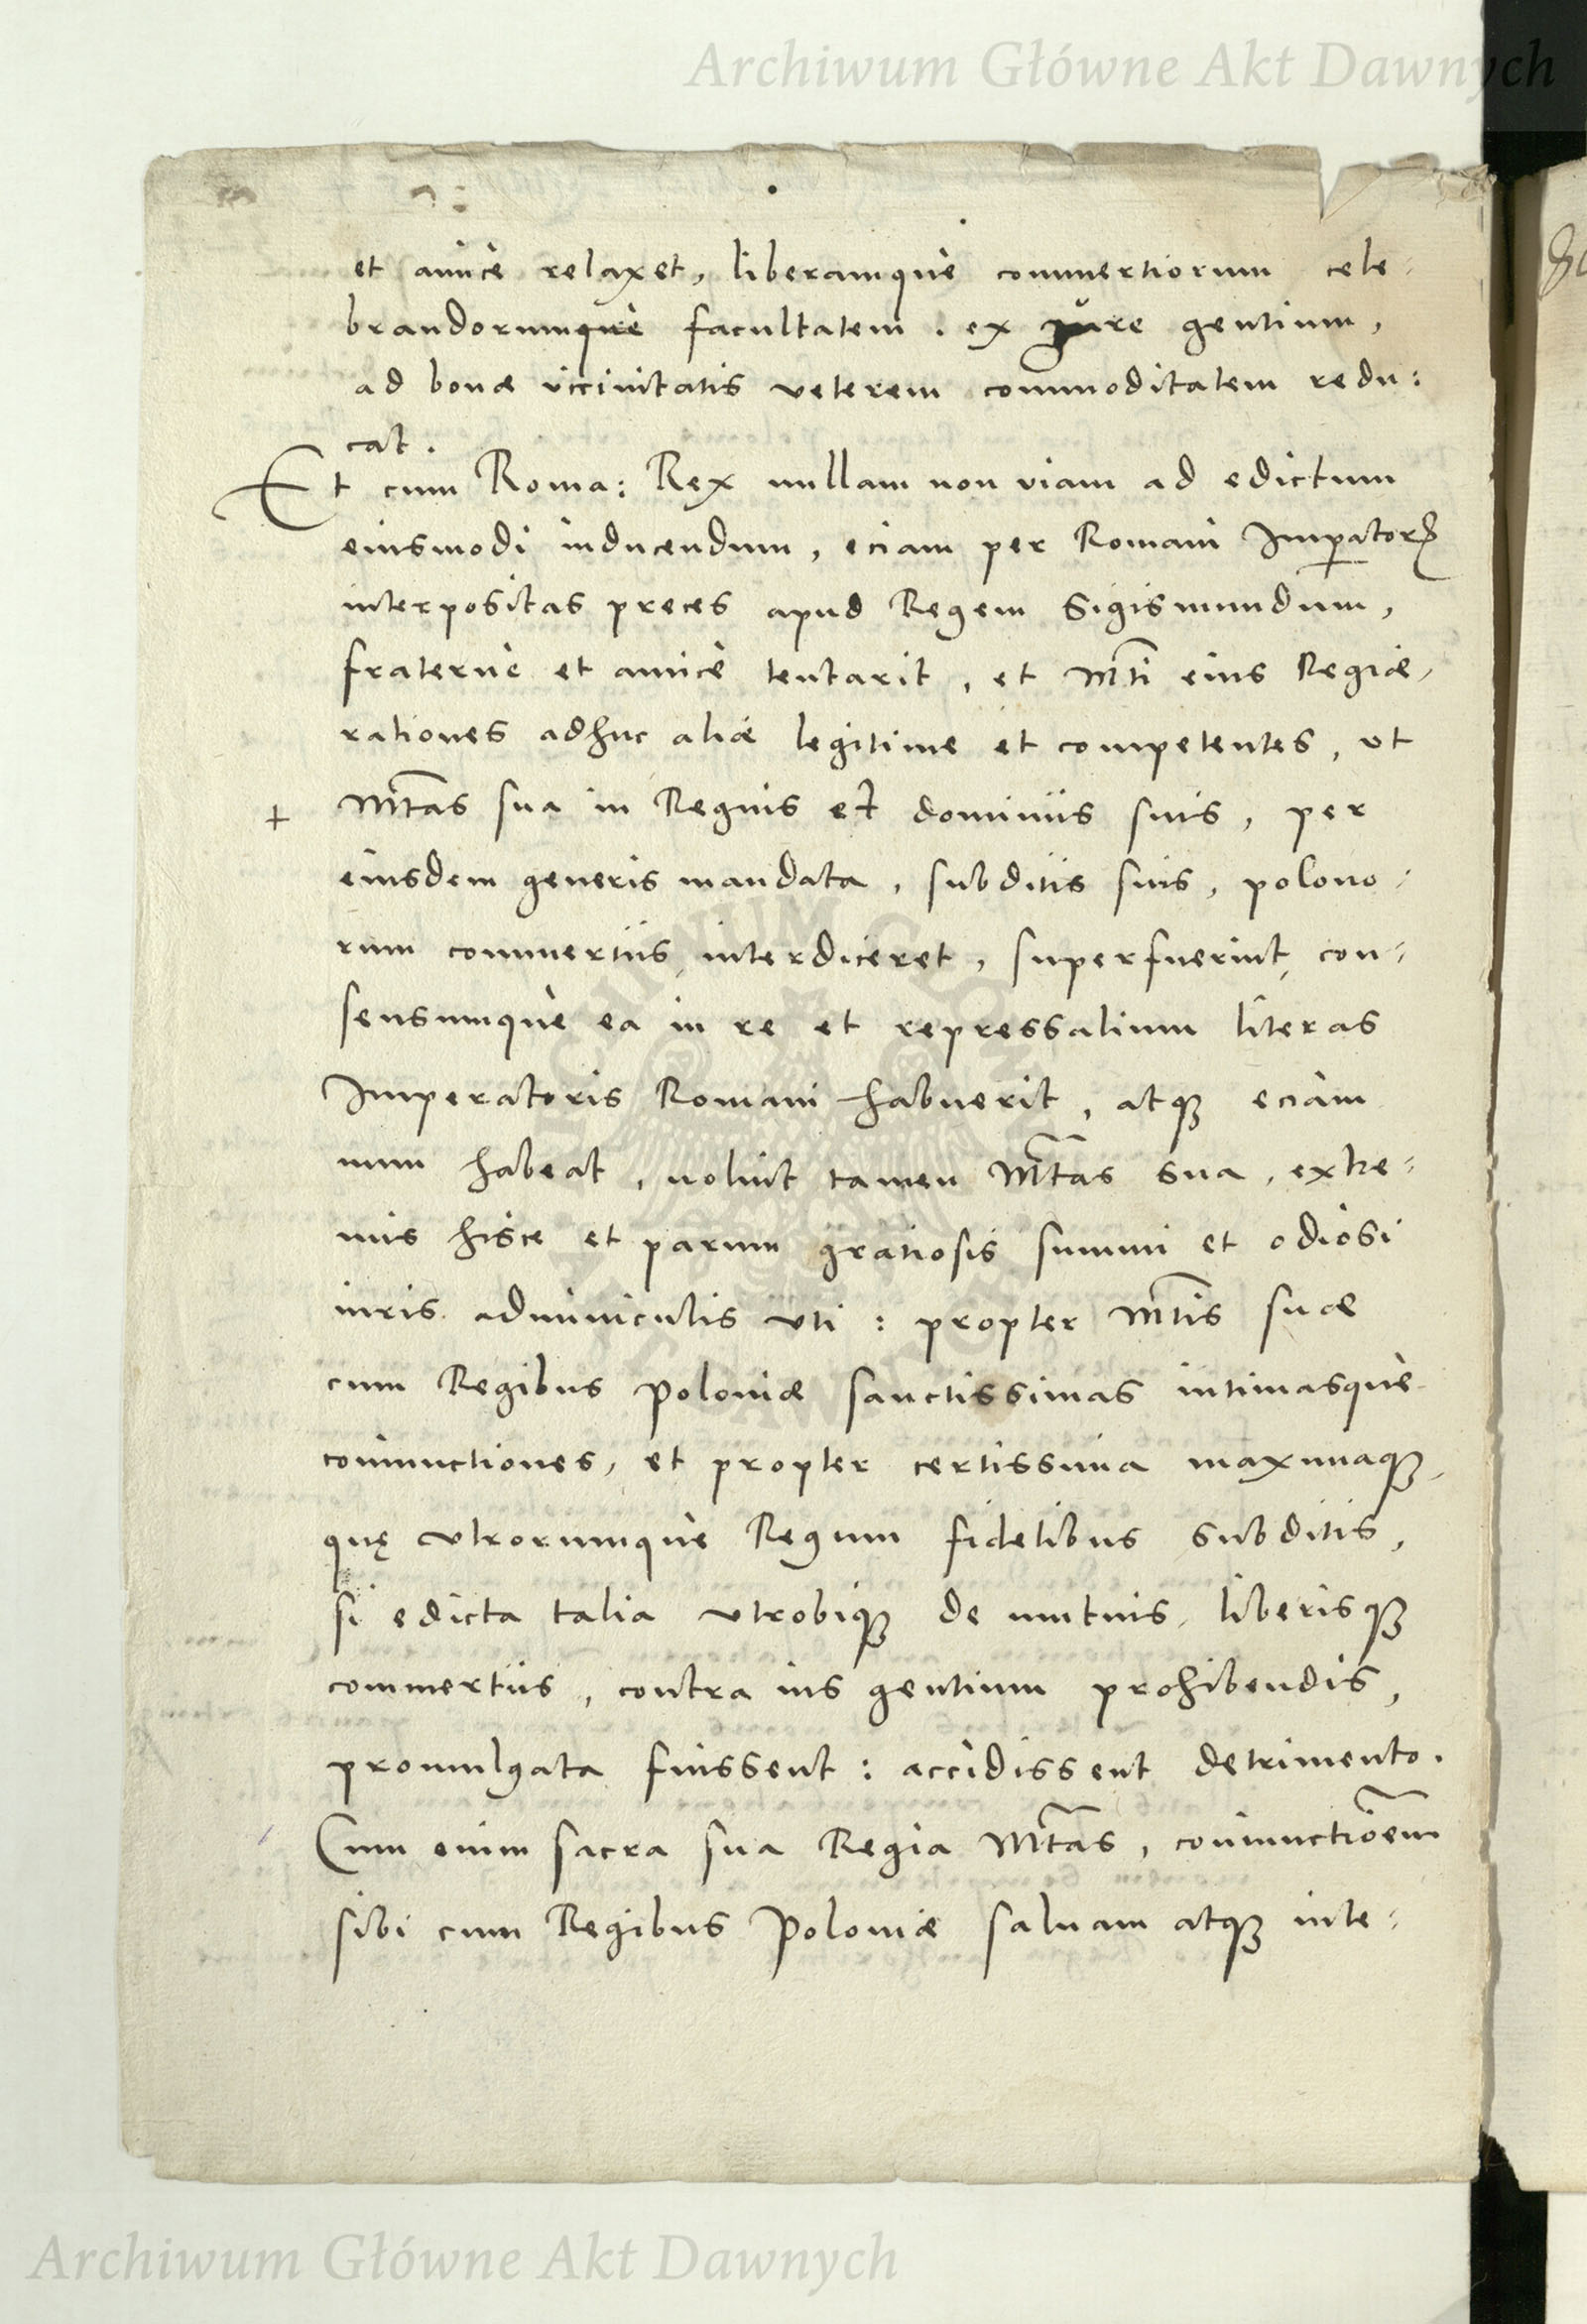 Archiwum Główne Akt Dawnych
et amice relaxet, liberamque commertiorum cele-
brandorumque facultatem. ex iure gentium,
ad bonæ vicinitatis veterem commoditatem redu:
cat.
Et cum Roma: Rex nullam non viam ad edictum
eiusmodi inducendum, eciam per Romani Imperatoris
interpositas preces apud Regem Sigismundum,
fraterne et amice tentarit, et Mti eius Regiæ,
rationes adhuc aliæ legitime et competentes, vt
+ Mtas sua in Regnis et dominiis suis, per
eiusdem generis mandata, subditis suis, polono-
rum commertiis interdiceret, superfuerint, con-
sensumque ea in re et repressalium literas
Imperatoris Romani habuerit, atque eciam
num habeat, noluit tamen Mtas sua, extre-
mis hisce et parum gratiosis summi et odiosi
iuris adminiculis vti: propter Mtis suæ
cum Regibus Poloniæ sanctissimas intimasque
coniunctiones, et propter certissima maximaque,
quę vtrorumque Regum fidelibus subditis,
si edicta talia vtrobique de mutuis, liberisque
commertiis, contra ius gentium prohibendis,
promulgata fuissent: accidissent detrimento.
Cum enim sacra sua Regia Mtas, coniunctioem
sibi cum Regibus Poloniæ saluam atque inte-
Archiwum Główne Akt Dawnych